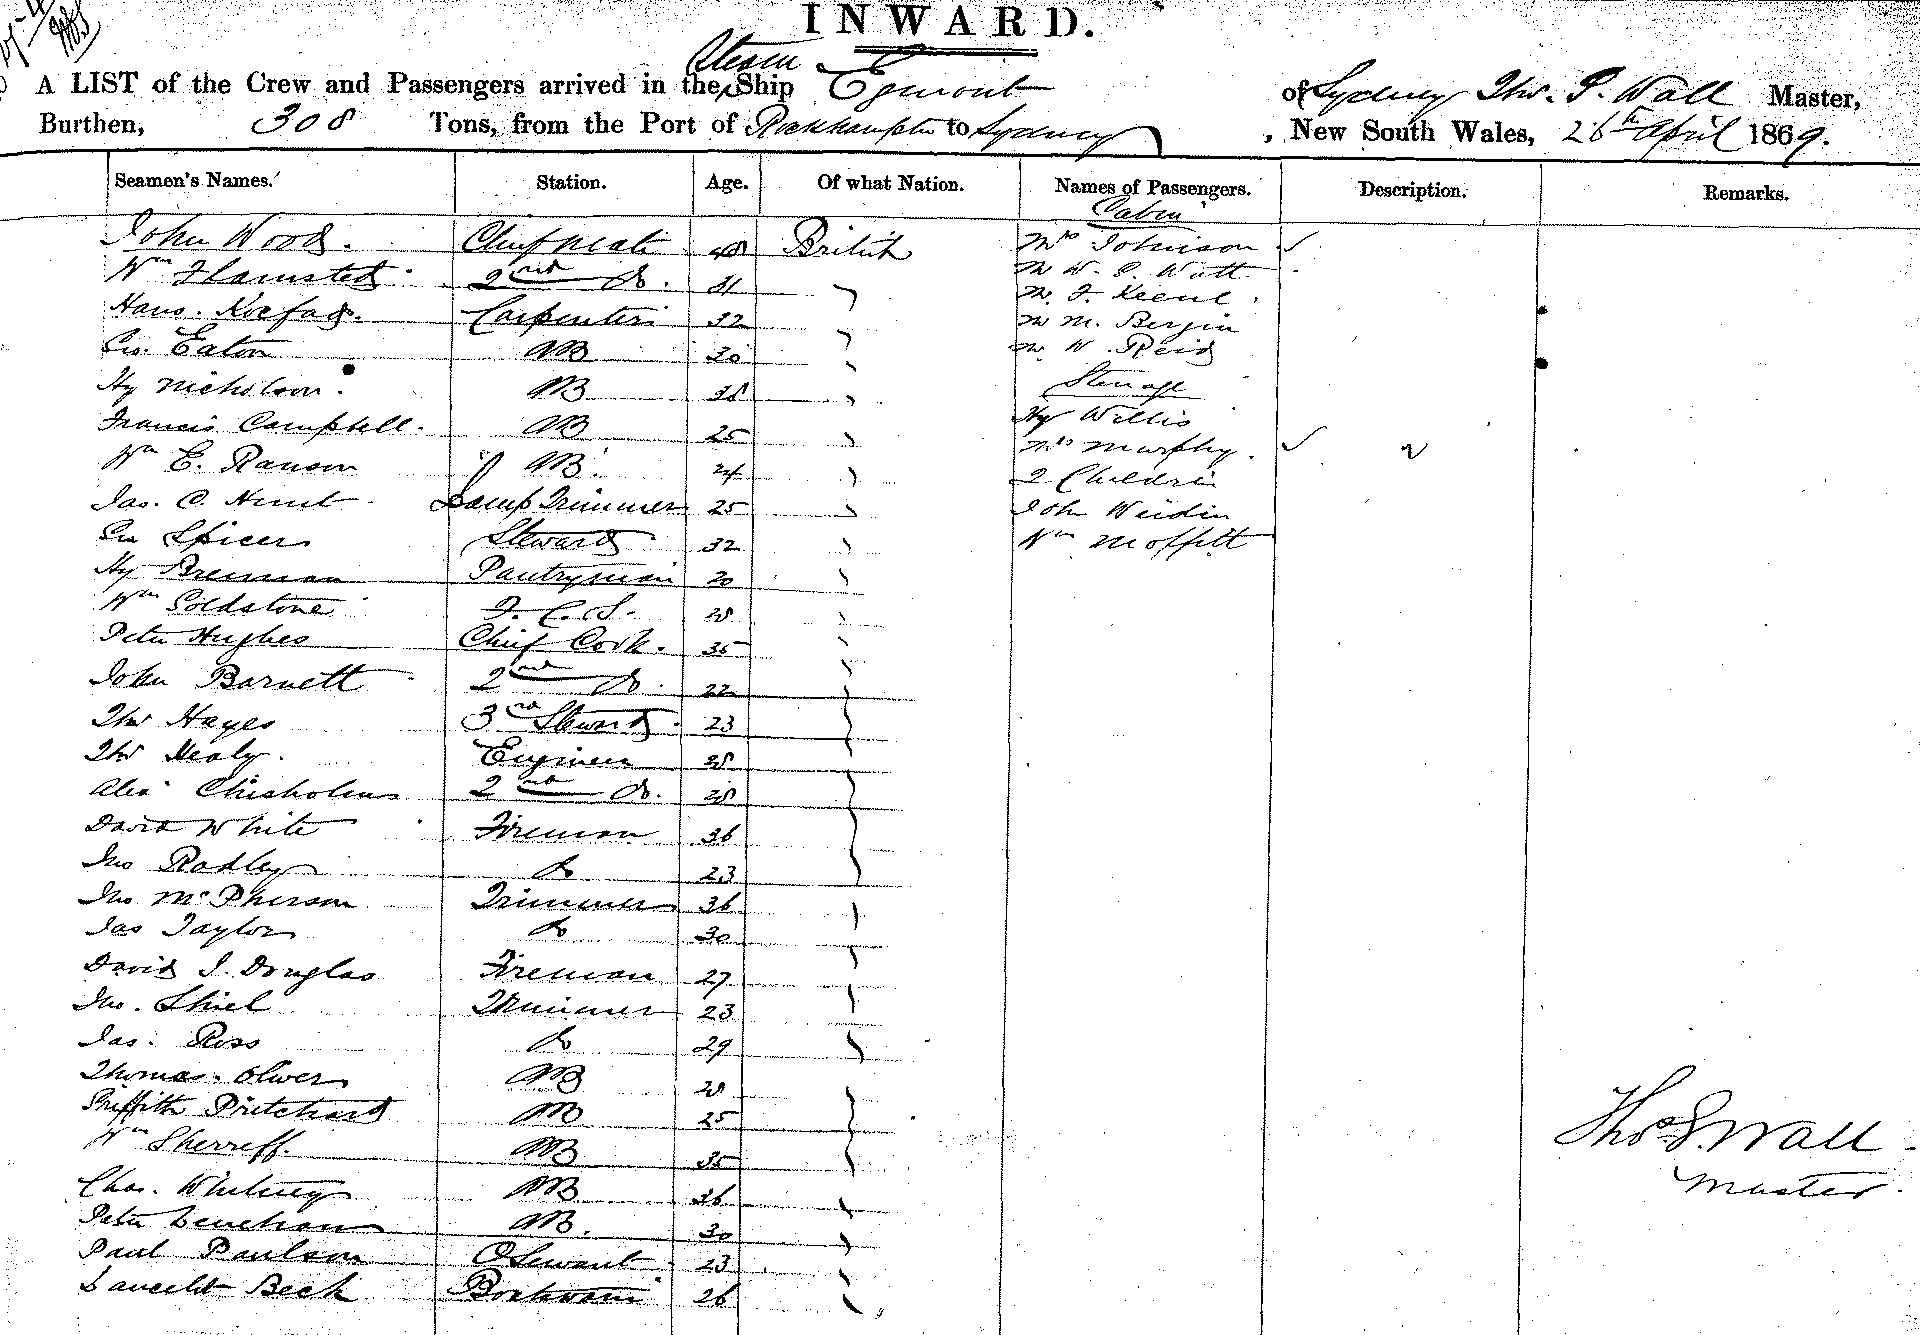 INWARD.
Steam
A LIST of the Crew and Passengers arrived in the Ship Egmont of Sydney Thos. S. Wall Master,
Burthen, 308 Tons, from the Port of Rockhampton to Sydney, New South Wales, 26th April 1869.
Seamen's Names. Station. Age. Of what Nation. Names of Passengers. Description. Remarks.
Cabin
John Wood. Chief Mate 48 British Mrs Johnson
Wm Flamsted 2nd Do. 31 Mr W. S. Watt
Hans. Carpenter 32 Mr. J. Keene
Geo. Eaton AB 30 Mr M. Bergin
Mr. W. Reid
Hy Nicholson. AB 38 Steerage
Francis Campbell. AB 25 Hy Willis
Wm E. Ranson AB. 24 Mrs Murphy.
2 Children
Jas. C. Hunt Lamp Trimmer 25 John
Geo Spicer Steward 32 Wm Moffitt
Hy Brennan Pantryman 20
Wm Goldstone F. C. S. 28
Peter Hughes Chief Cook. 35
John Barnett 2nd Do. 22
Thos Hayes 3rd Steward 23
Thos Healy. Engineer 28
Alex Chisholm 2nd Do. 28
David White Fireman 36
Jno Radley Do 23
Jno McPherson Trimmer 36
Jas Taylor Do 30
David J. Douglas Fireman 27
Jno. Shiel Trimmer 23
Jas. Ross Do 29
Thomas Oliver AB 28
Griffith Pritchard AB 25
Wm Sherreff. AB 35
Thos S. Wall
Master.
Chas. Whitney AB 36
Peter Lenehan AB. 30
Paul Paulson 23
Launcelot Beck Boatswain 26